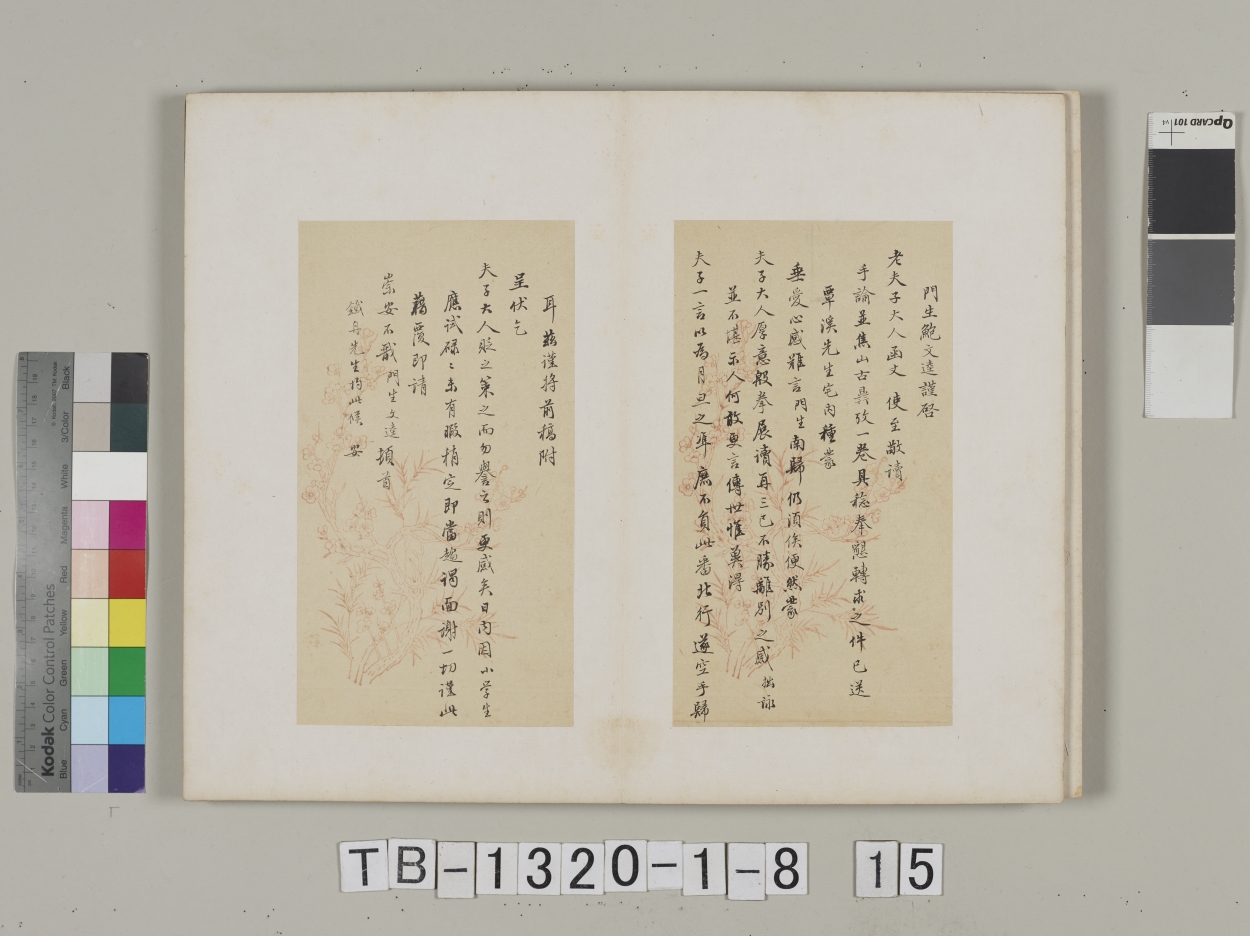 門生鮑文逵謹啓
老夫子大人函丈 使至敬讀
手諭並焦山古鼎攷一卷具稔奉懇轉求之件已送
覃溪先生宅內種蒙
垂愛心感難言門生南歸仍須俟便然蒙
夫子大人厚意殷拳展讀再三已不勝離別之感拙詠
並不堪示人何敢更言傳世惟冀得
夫子一言以為月旦之準庶不負此番北行遂空手歸
耳茲謹將前稿附
呈伏乞
夫子大人貶之策之而勿譽之則更感矣日內因小學生
應試碌〻未有暇稍定即當趨謁面謝一切謹此
藉覆即請
崇安不戬門生文逵頓首
鐵舟先生均此候 安
TB-1320-1-8 15
QPCARD 101 v4
Kodak Color Control Patches
Blue Cyan Green Yellow Red Magenta White 3/Color Black